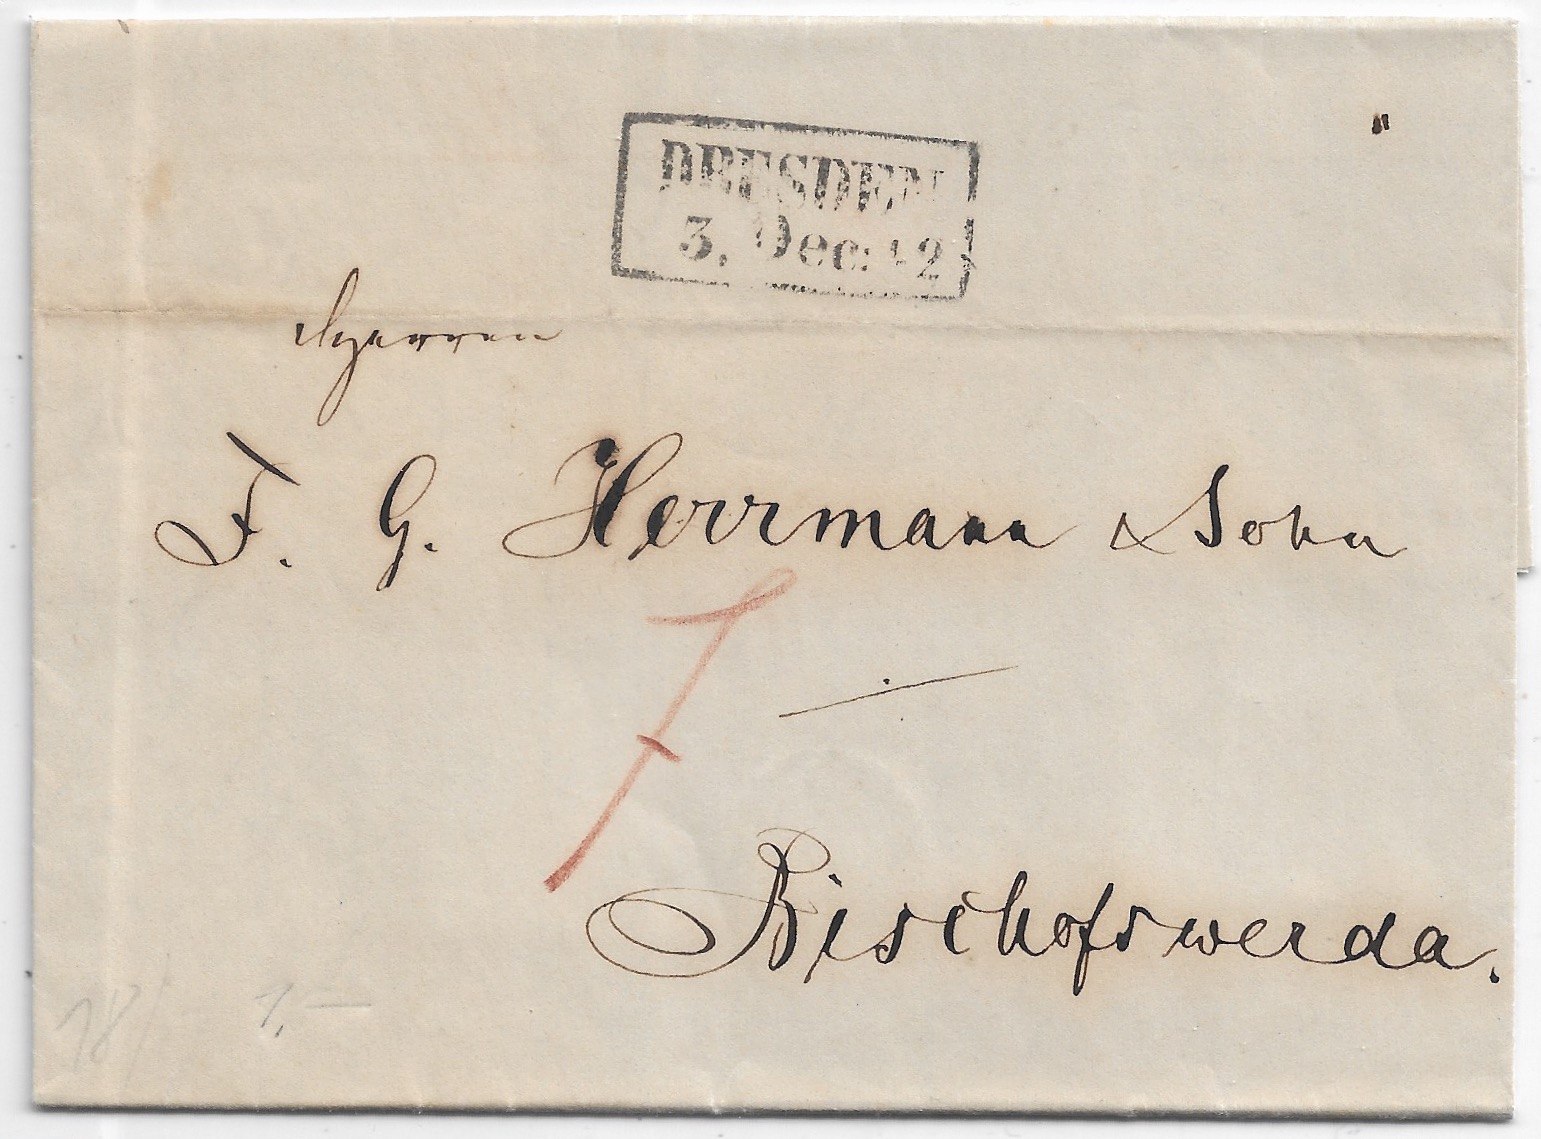 DRESDEN
3. Dec: 42
Herren
F. G. Herrmann & Sohn
7
Bischofswerda.